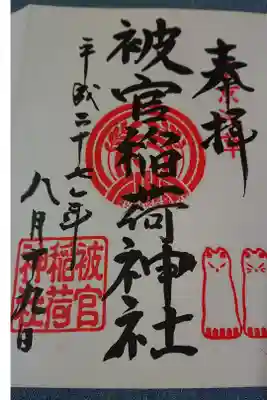 奉拝
被官稲荷神社
平成二十七年
八月十九日
被官
稲荷
神社